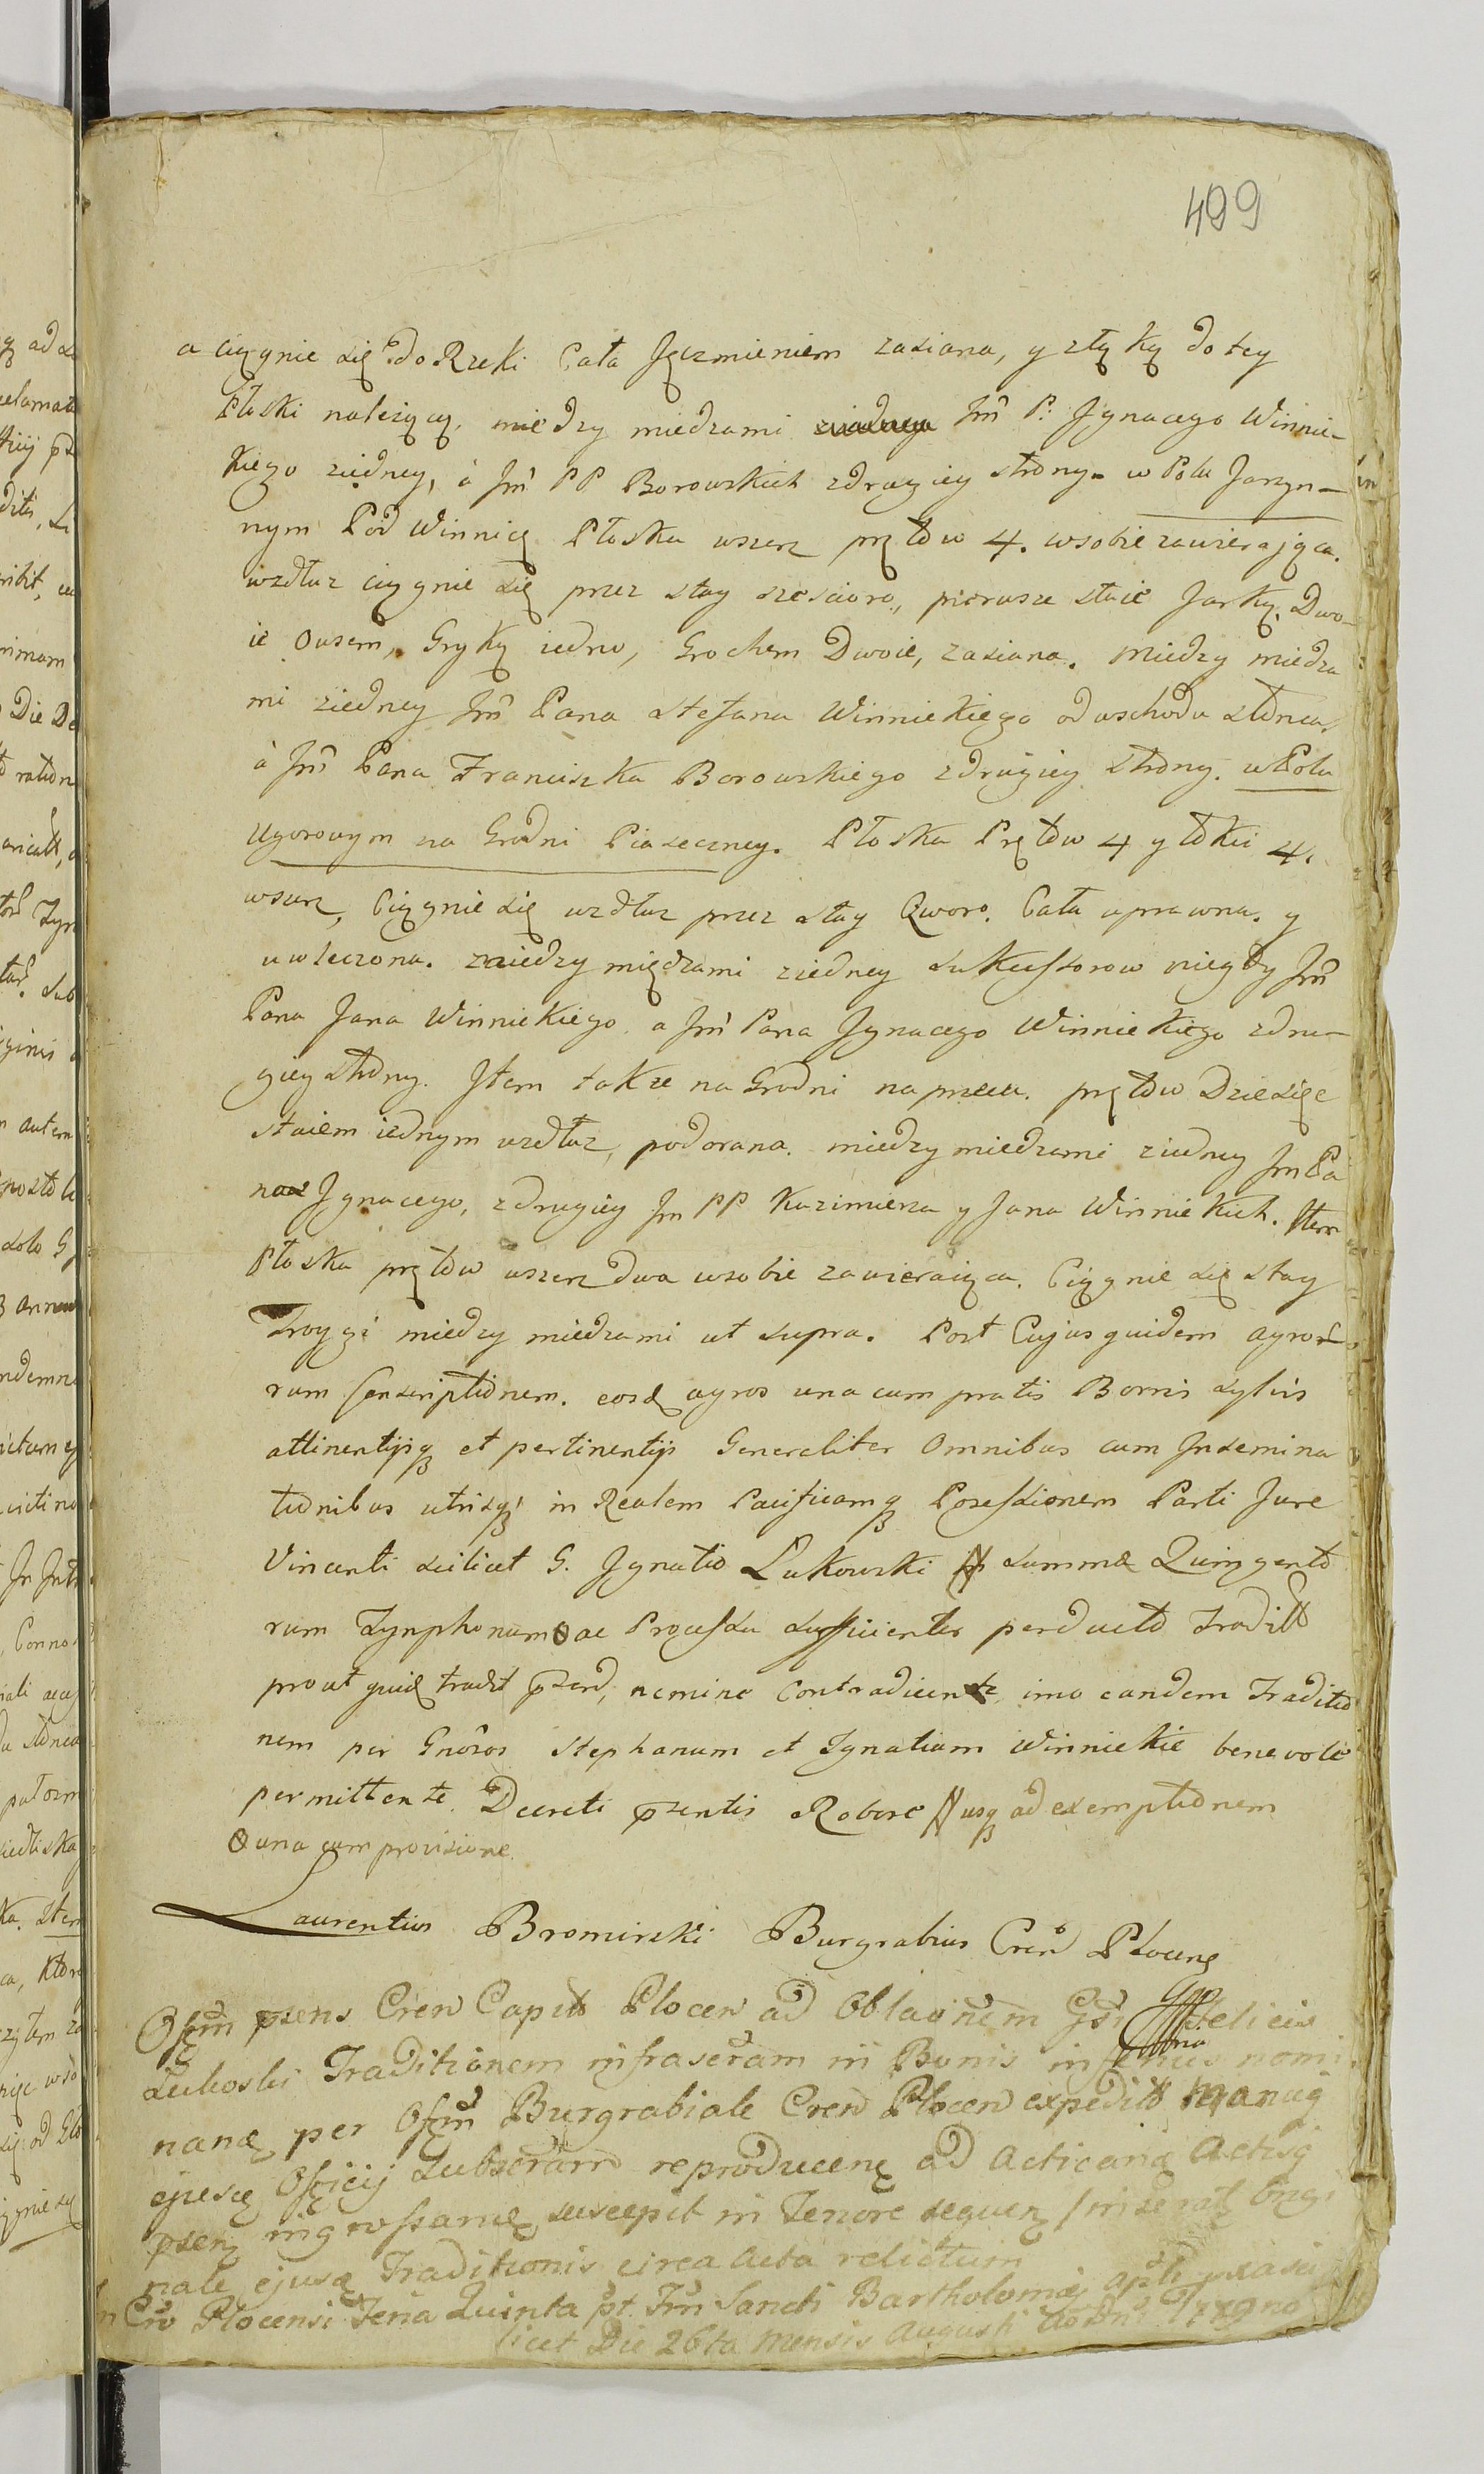 499
a ciągnie się do Rzeki Cała Jęczmieniem zasiana, y z łąką do tey
Płoski należącą, między miedzami Jm̃ P: Jgnacego Winnic-
kiego ziedney, à Jm̃ PP Borowskich zdrugiey strony. w Polu Jarzyn-
nym Pod Winnicą Płoska wszerz prętow 4. wsobie zawierająca.
wzdłuz ciągnie się przez stay szescioro, pierwsze staie Jarką, Dwo-
ie Owsem, Gryką iedno, Grochem Dwoie, zasiana. Miedzy miedza
mi ziedney Jm̃ Pana Stefana Winnickiego od wschodu słonca,
à Jm̃ Pana Franciszka Borowskiego zdrugiey strony. w Polu
Ugorowym na Grodni Piaseczney. Płoska Prętow 4 y łokci 4.
wszerz, Ciągnie się wzdłuz przez stay Qworo. Cała uprawna. y
uwleczona. miedzy międzami ziedney Sukcessorow niegdy Jm̃
Pana Jana Winnickiego a Jm̃ Pana Jgnacego Winnickiego zdru-
giey strony. Jtem takze na Grodni na przecz. prętow Dziesięc
staiem iednym wzdłuz, podorana. miedzy miedzami ziedney Jm Pa
na Jgnacego, zdrugiey Jm PP Kazimierza y Jana Winnickich. Jtem
Płoska prętow wszerz dwa wsobie zawieraiąca. Ciągnie się stay
Troygi miedzy miedzami ut supra. Post Cujus quidem agro-
rum Conscriptionem. eosd agros una cum pratis Borris Sylvis
attinentijsq et pertinentijs Generaliter Omnibus cum Jnsemina
tionibus utrisq in Realem Pacificamq Possessionem Parti Jure
Vincenti scilicet G. Jgnatio Łukowski summæ Quingento
rum Tynphonum ac Processu sufficienter perducto Tradidit
prout quidē tradit psend, nemine Contradicente imo eandem Traditio
nem per Gnôsos Stephanum et Ignatium Winnickie benevole
permittente. Decreti psentis Robore usq ad exemptionem
una cum provisione.
Laurentius Bromirski Burgrabius Cren Plocens
Offm psens Cren Capit Plocen ad Oblaõnem Gsi Felicis
Łukoski Traditionem infrascram in Bonis inferius nomi
nand per Offm Burgrabiale Cren Plocen expedit Manuq
ejusd Officij Subscram reproducend ad Acticand Actisq
psen ingrossand suscepit in Tenore sequen
nale ejusd Traditionis circa Acta relictum
Cro Plocensi Feria Quinta pt Fm Sancti Bartholomæi Apli
licet Die 26ta Mensis Augusti Ao Dni 1779no